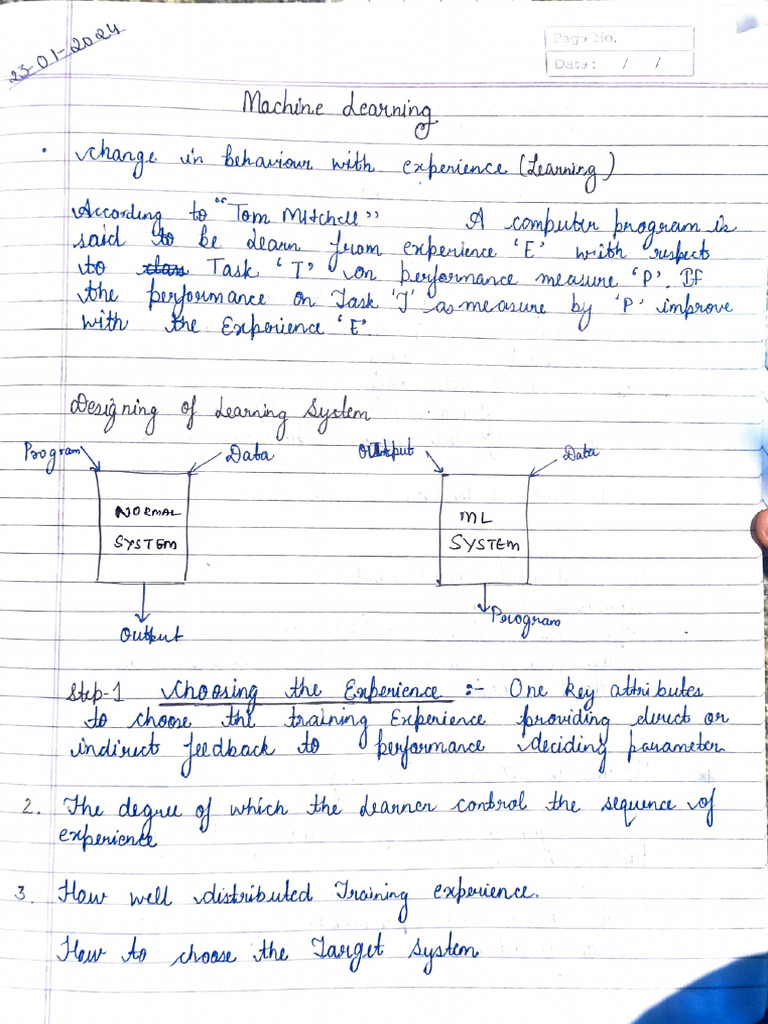 23-01-2024
Page No.
Date: / /
Machine Learning
• change in behaviour with experience (Learning)
According to "Tom Mitchell" A computer program is
said to be learn from experience 'E' with respect
to Task 'T' on performance measure 'P'. If
the performance on Task 'T' as measure by 'P' improve
with the Experience 'E'.
Designing of Learning System
Program Data Output Data
NORMAL ML
SYSTEM SYSTEM
Output Program
Step-1 Choosing the Experience :- One key attributes
to choose the training Experience providing direct or
indirect feedback to performance deciding parameter
2. The degree of which the learner control the sequence of
experience
3. How well distributed Training experience.
How to choose the Target System